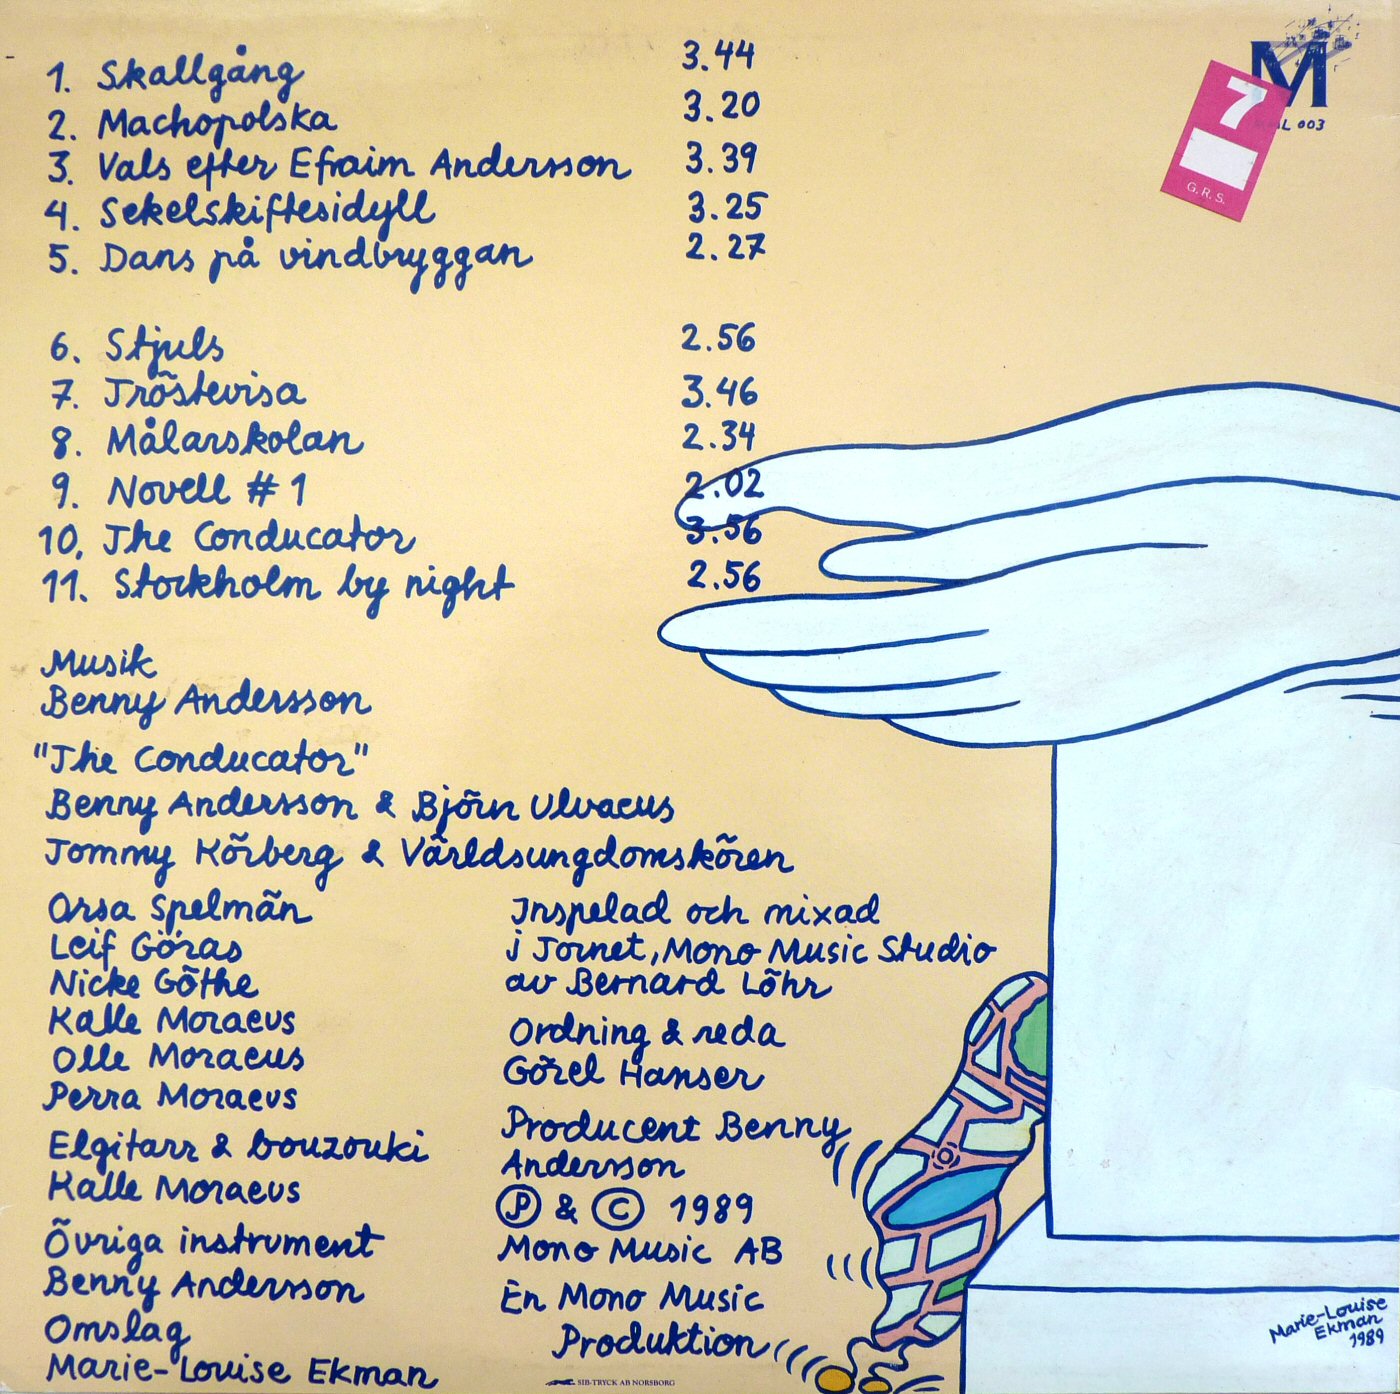 1. Skallgång 3.44
2. Machopolska 3.20
3. Vals efter Efraim Andersson 3.39
4. Sekelskiftesidyll 3.25
5. Dans på vindbryggan 2.27
6. Stjuls 2.56
7. Tröstevisa 3.46
8. Målarskolan 2.34
9. Novell # 1 2.02
10. The Conducator 3.56
11. Stockholm by night 2.56
M
7
L 003
G.R.S.
Musik
Benny Andersson
"The Conducator"
Benny Andersson & Björn Ulvaeus
Tommy Körberg & Världsungdomskören
Orsa Spelmän
Leif Göras
Nicke Göthe
Kalle Moraeus
Olle Moraeus
Perra Moraeus
Elgitarr & bouzouki
Kalle Moraeus
Övriga instrument
Benny Andersson
Omslag
Marie-Louise Ekman
Inspelad och mixad
i Tornet, Mono Music Studio
av Bernard Löhr
Ordning & reda
Görel Hanser
Producent Benny
Andersson
Ⓟ & © 1989
Mono Music AB
En Mono Music
Produktion
SIB-TRYCK AB NORSBORG
Marie-Louise
Ekman
1989